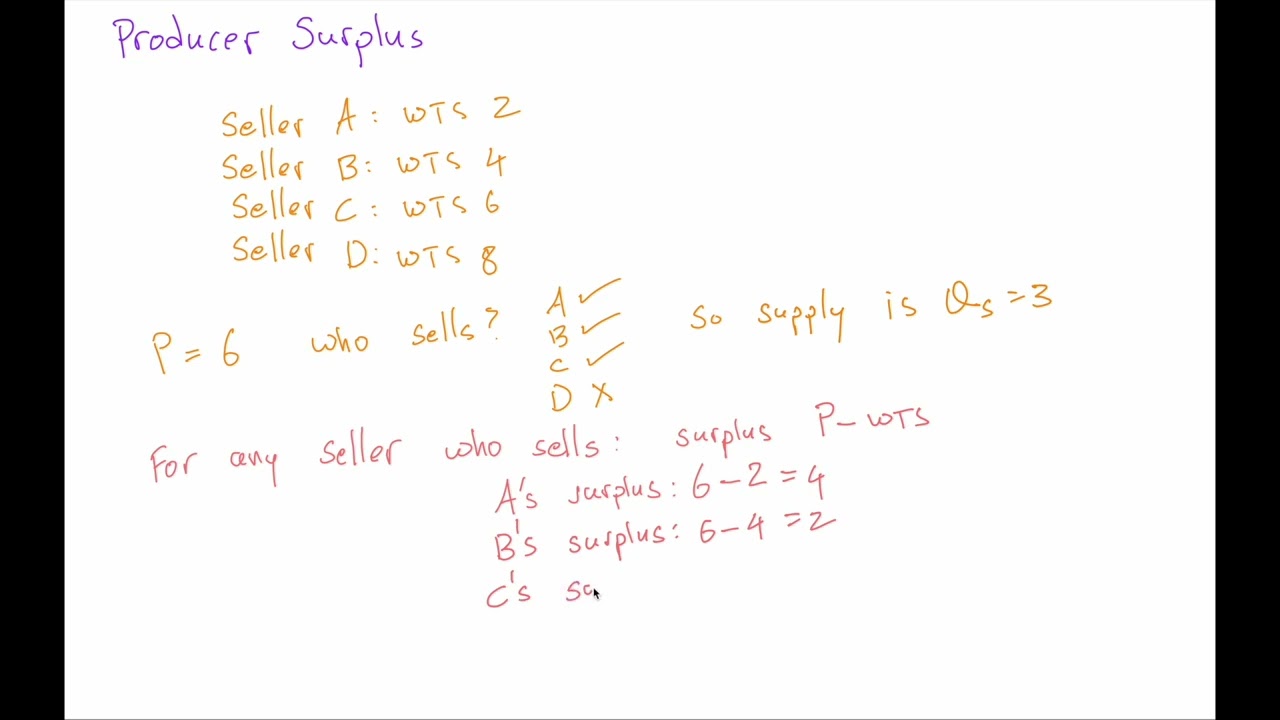 Producer Surplus
Seller A: WTS 2
Seller B: WTS 4
Seller C: WTS 6
Seller D: WTS 8
P = 6 who sells? A ✓ so supply is Qs = 3
B ✓
C ✓
D X
For any seller who sells: surplus P - WTS
A's surplus: 6 - 2 = 4
B's surplus: 6 - 4 = 2
C's su